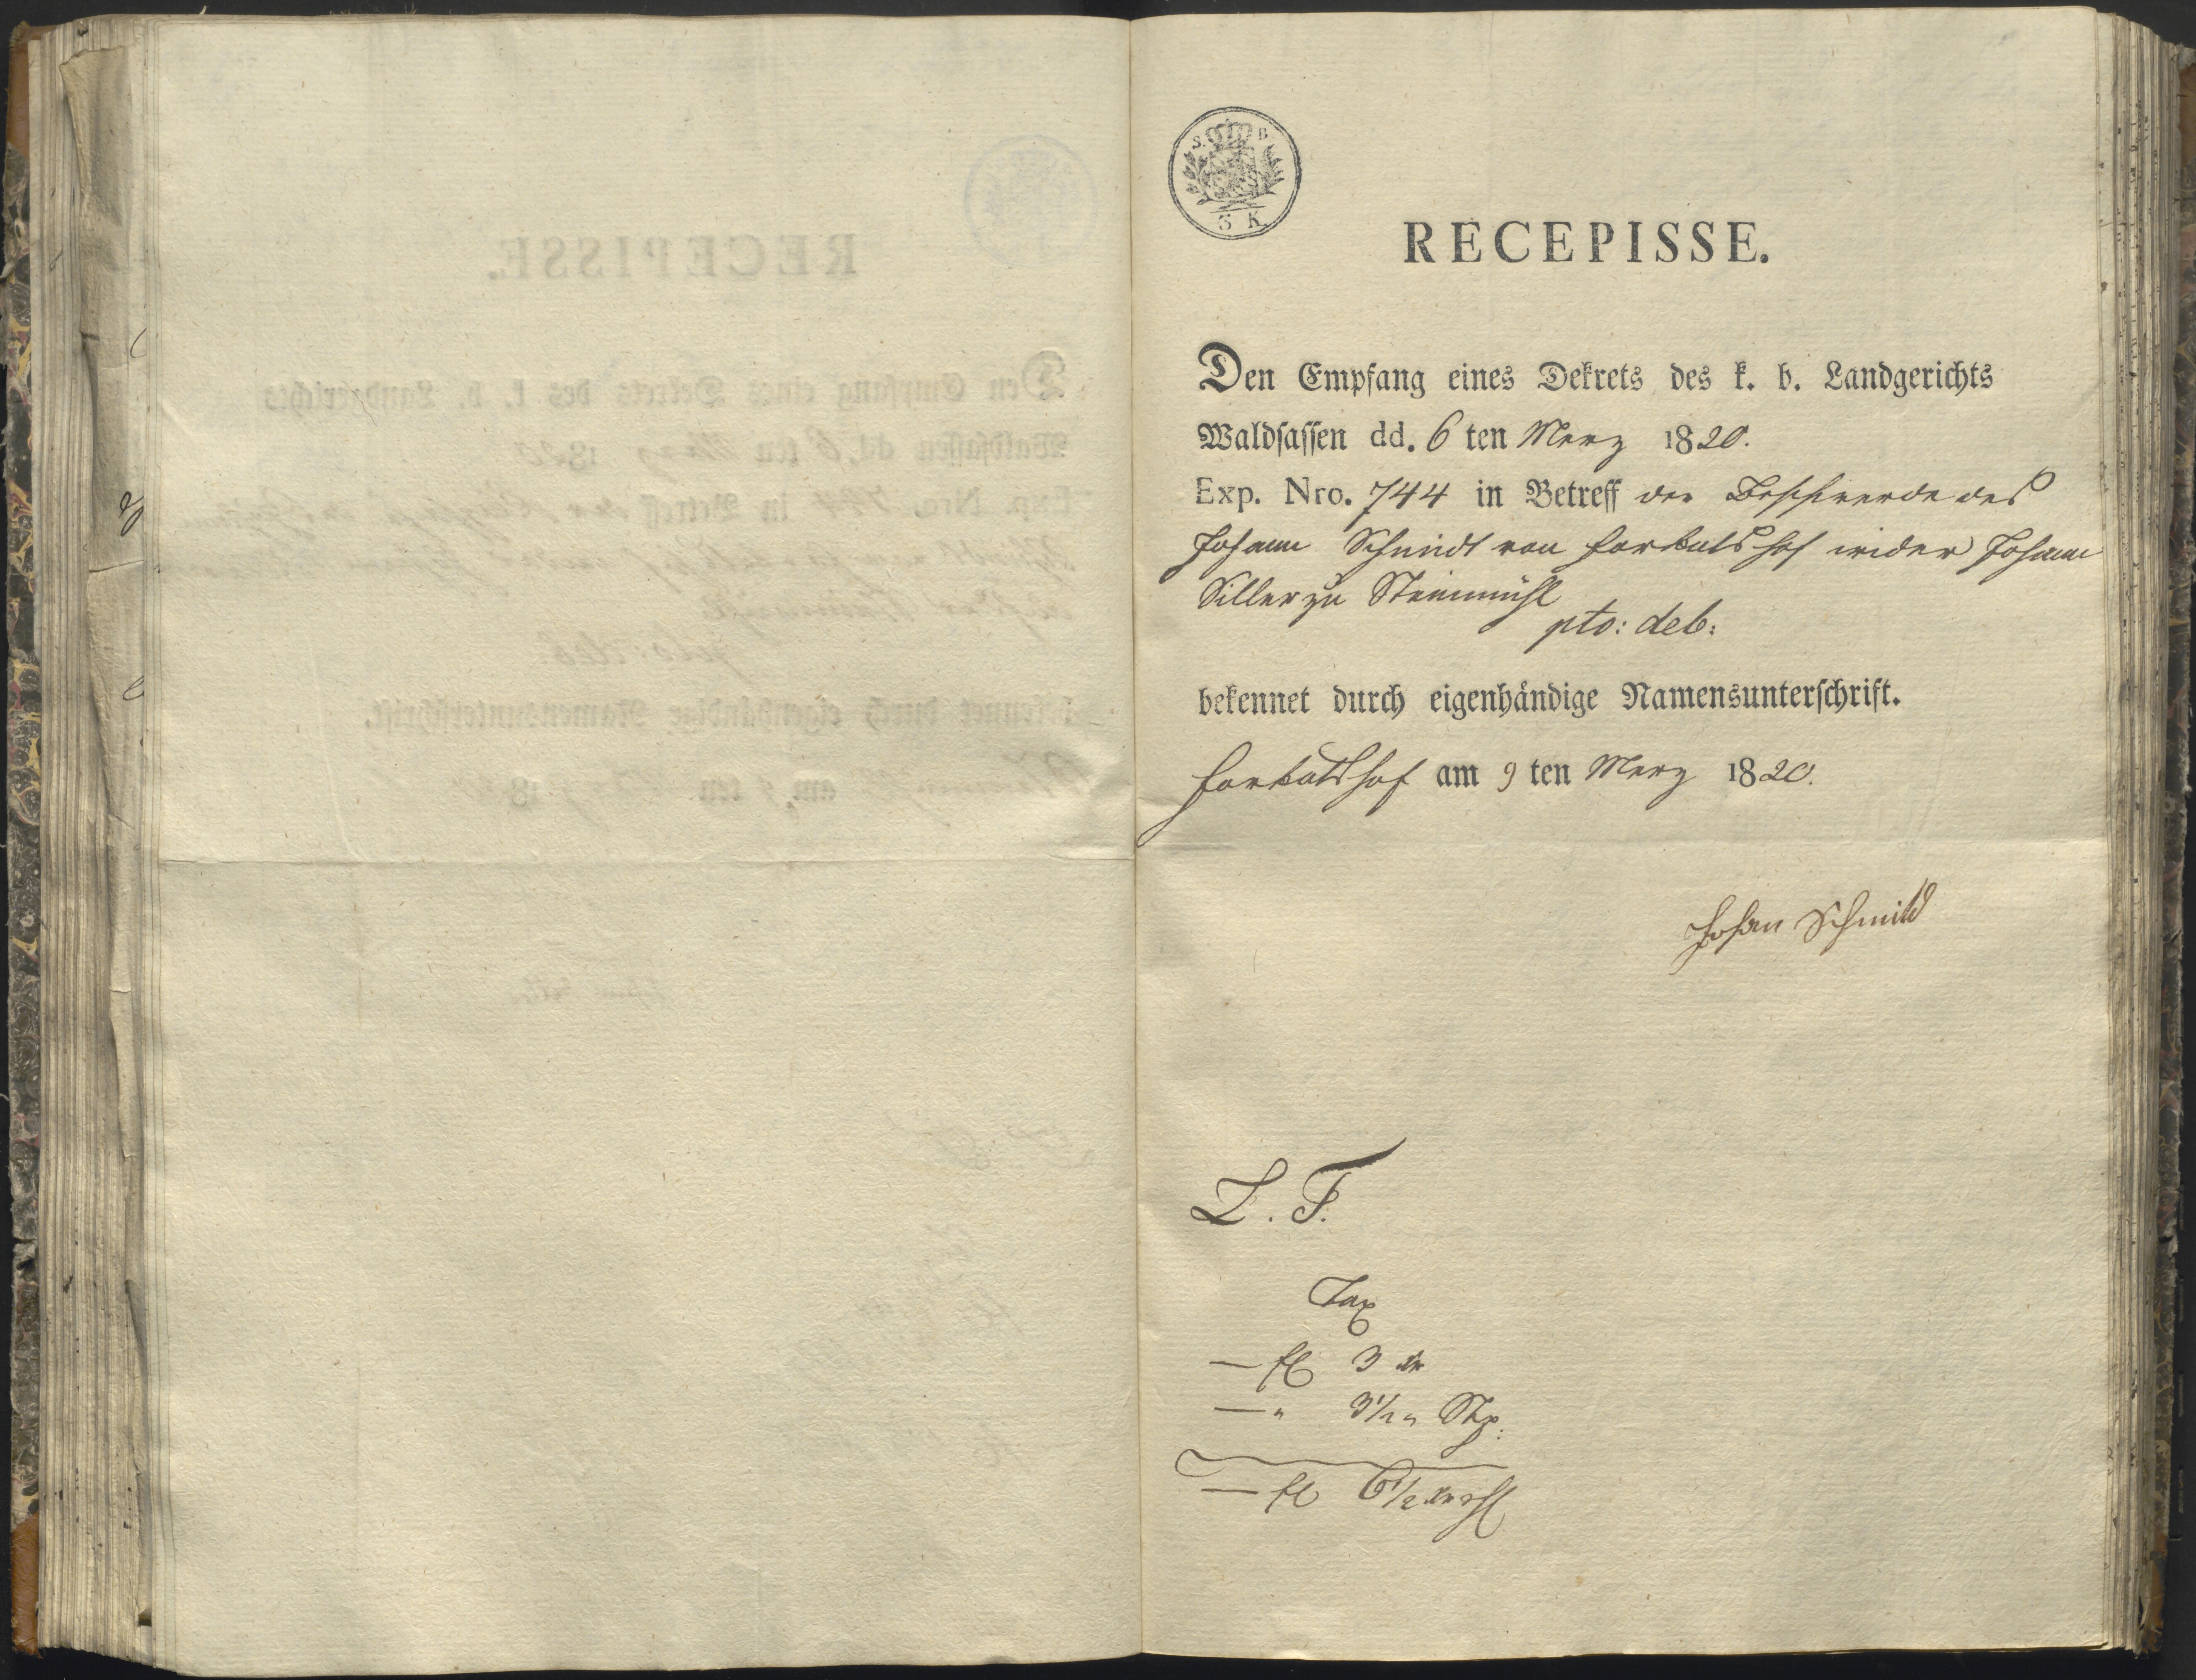 S. B.
3 K.
RECEPISSE.
Den Empfang eines Dekrets des k. b. Landgerichts
Waldsassen dd. 6 ten Merz 1820.
Exp. Nro. 744 in Betreff der Beschwerde des
Johann Schmidt von Forkatshof wider Johann
Siller zu Steinmühl
pto: deb:
bekennet durch eigenhändige Namensunterschrift.
Forkatshof am 9 ten Merz 1820.
Johan Schmitd
L. F.
Tax
— fl 3 xr
— " 3½ " Stp:
— fl 6½ xr